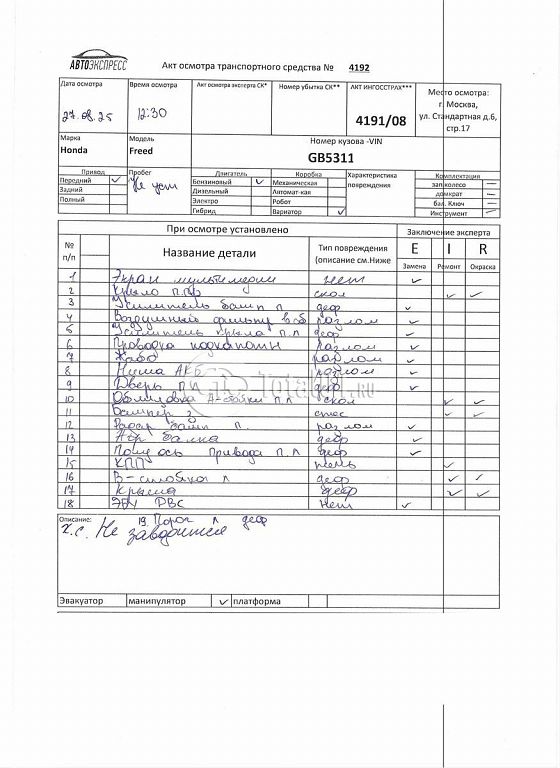 АВТОЭКСПРЕСС
Акт осмотра транспортного средства № 4192
Дата осмотра
27.08.25
Время осмотра
12:30
Акт осмотра эксперта СК*
Номер убытка СК**
АКТ ИНГОССТРАХ***
4191/08
Место осмотра:
г. Москва,
ул. Стандартная д.6,
стр.17
Марка
Honda
Модель
Freed
Номер кузова -VIN
GB5311
Привод
Передний ✓
Задний
Полный
Пробег
Не уст
Двигатель
Бензиновый ✓
Дизельный
Электро
Гибрид
Коробка
Механическая
Автомат-кая
Робот
Вариатор ✓
Характеристика
повреждения
Комплектация
зап колесо —
домкрат —
бал. Ключ —
Инструмент ✓
При осмотре установлено
Заключение эксперта
№ п/п
Название детали
Тип повреждения
(описание см.Ниже
E I R
Замена Ремонт Окраска
1 Экран мультимедии нет ✓
2 Крыло п.пр скол ✓ ✓
3 Усилитель бамп п. деф ✓
4 Воздушный фильтр в сб разлом ✓
5 Усилитель крыла п.л деф ✓
6 Проводка подкапотн разлом ✓
7 Жабо разлом ✓
8 Ниша АКБ разлом ✓
9 Дверь п.л деф ✓
10 Облицовка А-стойки п.л скол ✓ ✓
11 Бампер з ✓ ✓
12 Радар бамп п. разлом ✓
13 балка деф ✓
14 Полуось привода п.л деф ✓
15 КПП ✓
16 В-стойка л деф ✓ ✓
17 Крыша деф ✓ ✓
18 ЭБУ РВС нет ✓
TotalBit.ru
Описание: 19. Порог л деф
х.с. Не заводится
Эвакуатор манипулятор ✓ платформа